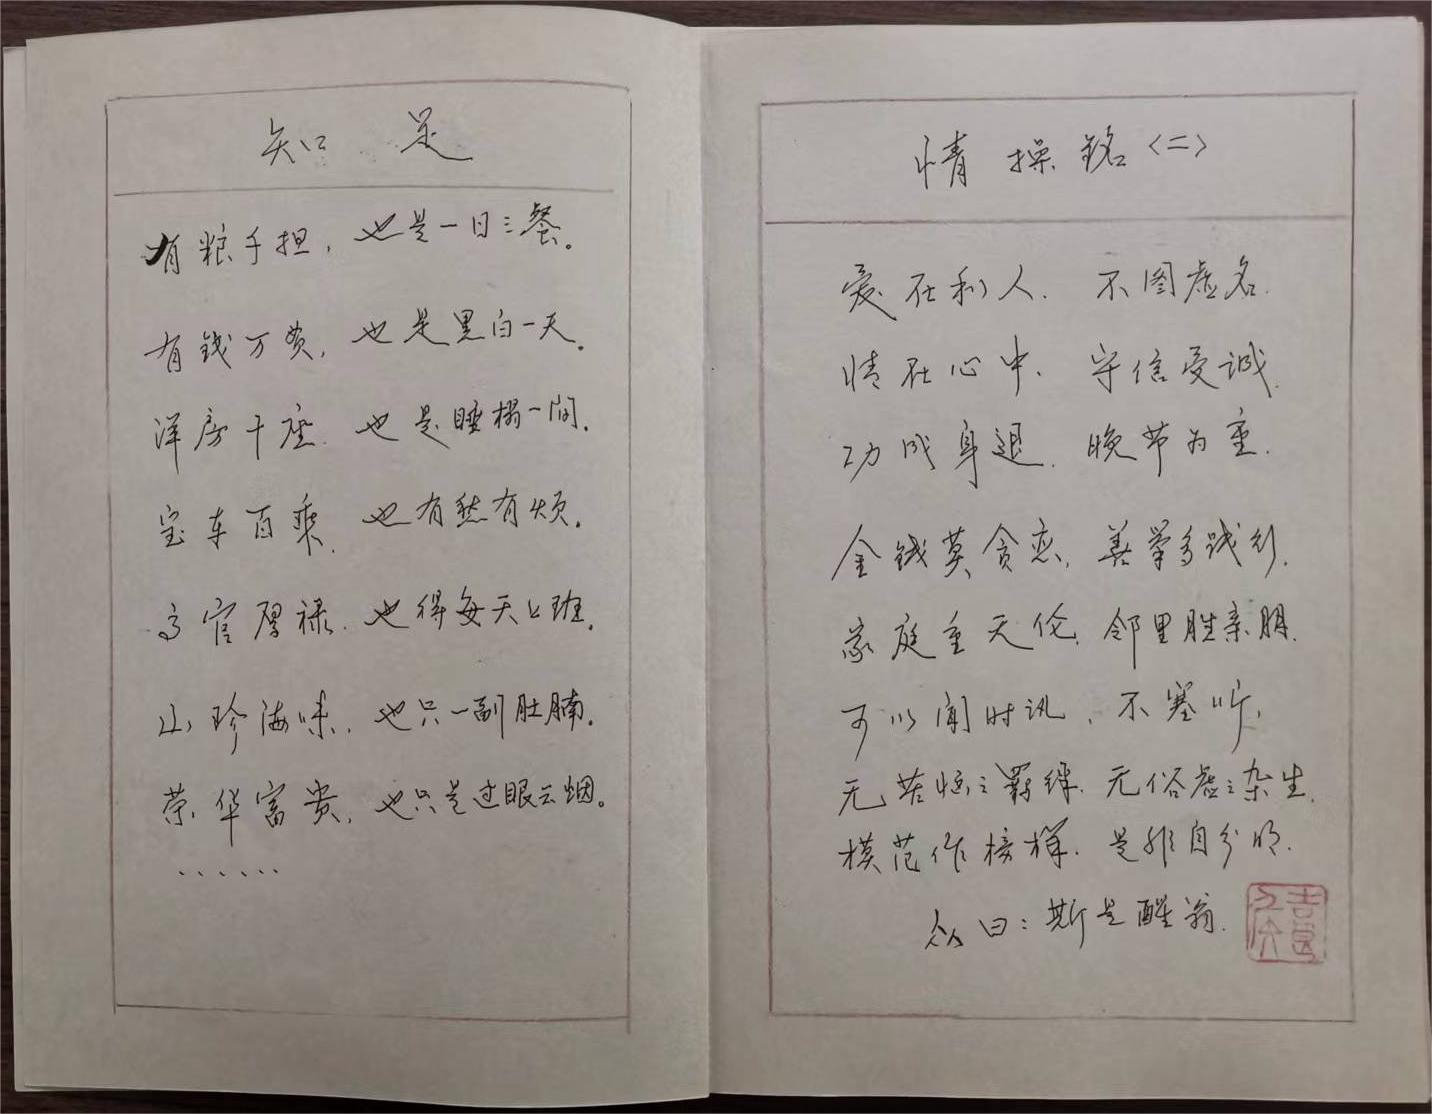 知足
有粮千担，也是一日三餐。
有钱万贯，也是黑白一天。
洋房十座．也是睡榻一间．
宝车百乘．也有愁有烦．
高官厚禄．也得每天上班．
山珍海味．也只一副肚腩．
荣华富贵，也只是过眼云烟。
......
情操铭〈二〉
爱在利人．不图虚名．
情在心中．守信受诚．
功成身退．晚节为重．
金钱莫贪恋．善学多践行．
家庭重天伦．邻里胜亲朋．
可以闻时讯，不塞听，
无苦恼之羁绊．无俗虚之杂生．
模范作榜样．是非自分明．
众曰：斯是醒翁．